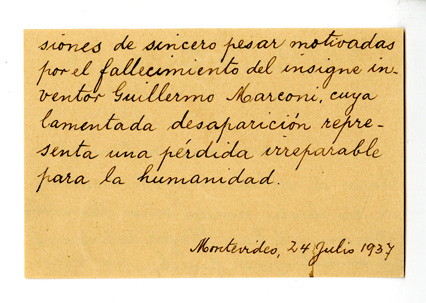 siones de sincero pesar motivadas
por el fallecimiento del insigne in-
ventor Guillermo Marconi, cuya
lamentada desaparición repre-
senta una pérdida irreparable
para la humanidad.
Montevideo, 24 Julio 1937